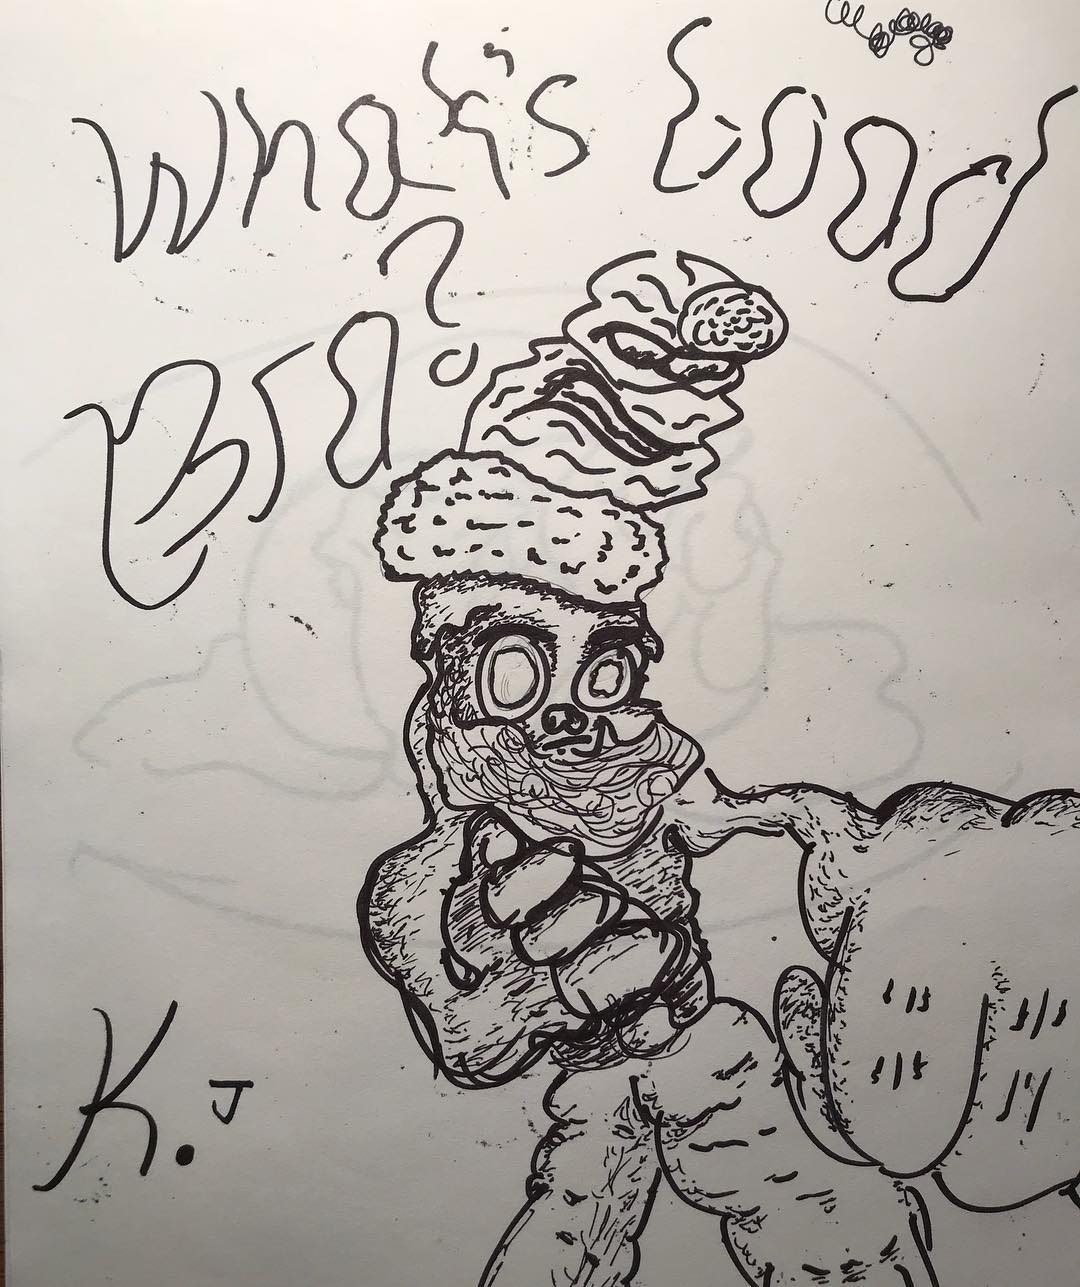 What's Good
Bra?
K.J